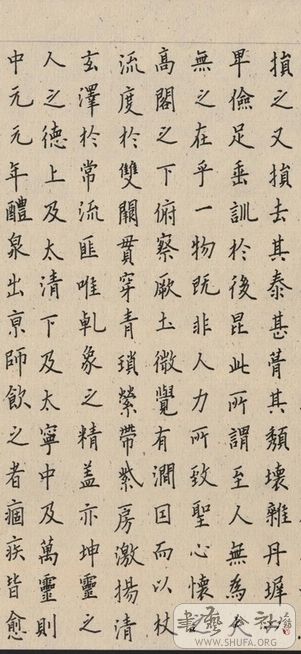 損之又損去其泰甚葺其頹壞雜丹墀
卑儉足垂訓於後昆此所謂至人無為
無之在乎一物既非人力所致聖心懷
高閣之下俯察厥土微覺有潤因而以杖
流度於雙闕貫穿青瑣縈帶紫房激揚清
玄澤於常流匪唯乹象之精盖亦坤靈之
人之德上及太清下及太寧中及萬靈則
中元元年醴泉出京師飲之者痼疾皆愈
WWW.SHUFA.ORG